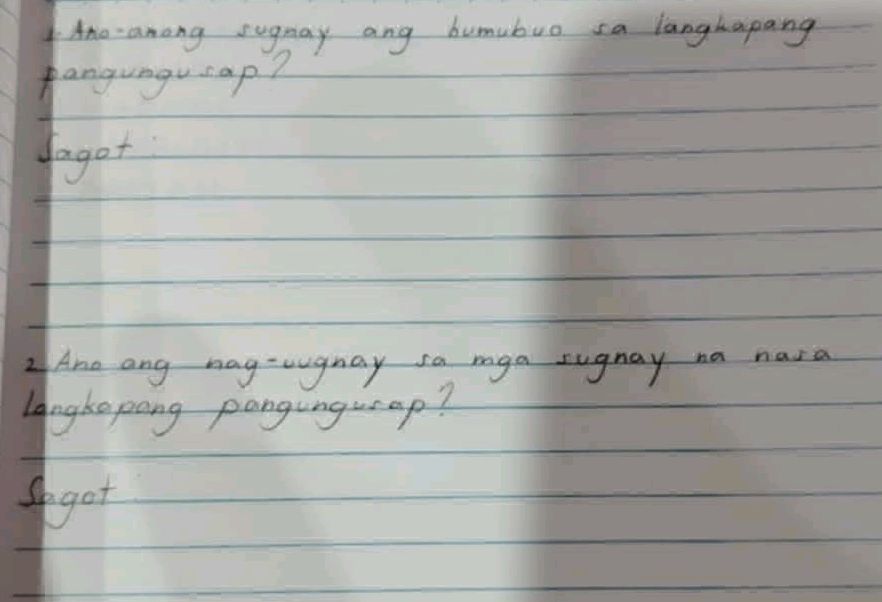 1. Ano-anong sugnay ang bumubuo sa langkapang
pangungusap?
Sagot:
2. Ano ang nag-uugnay sa mga sugnay na nasa
langkapang pangungusap?
Sagot: